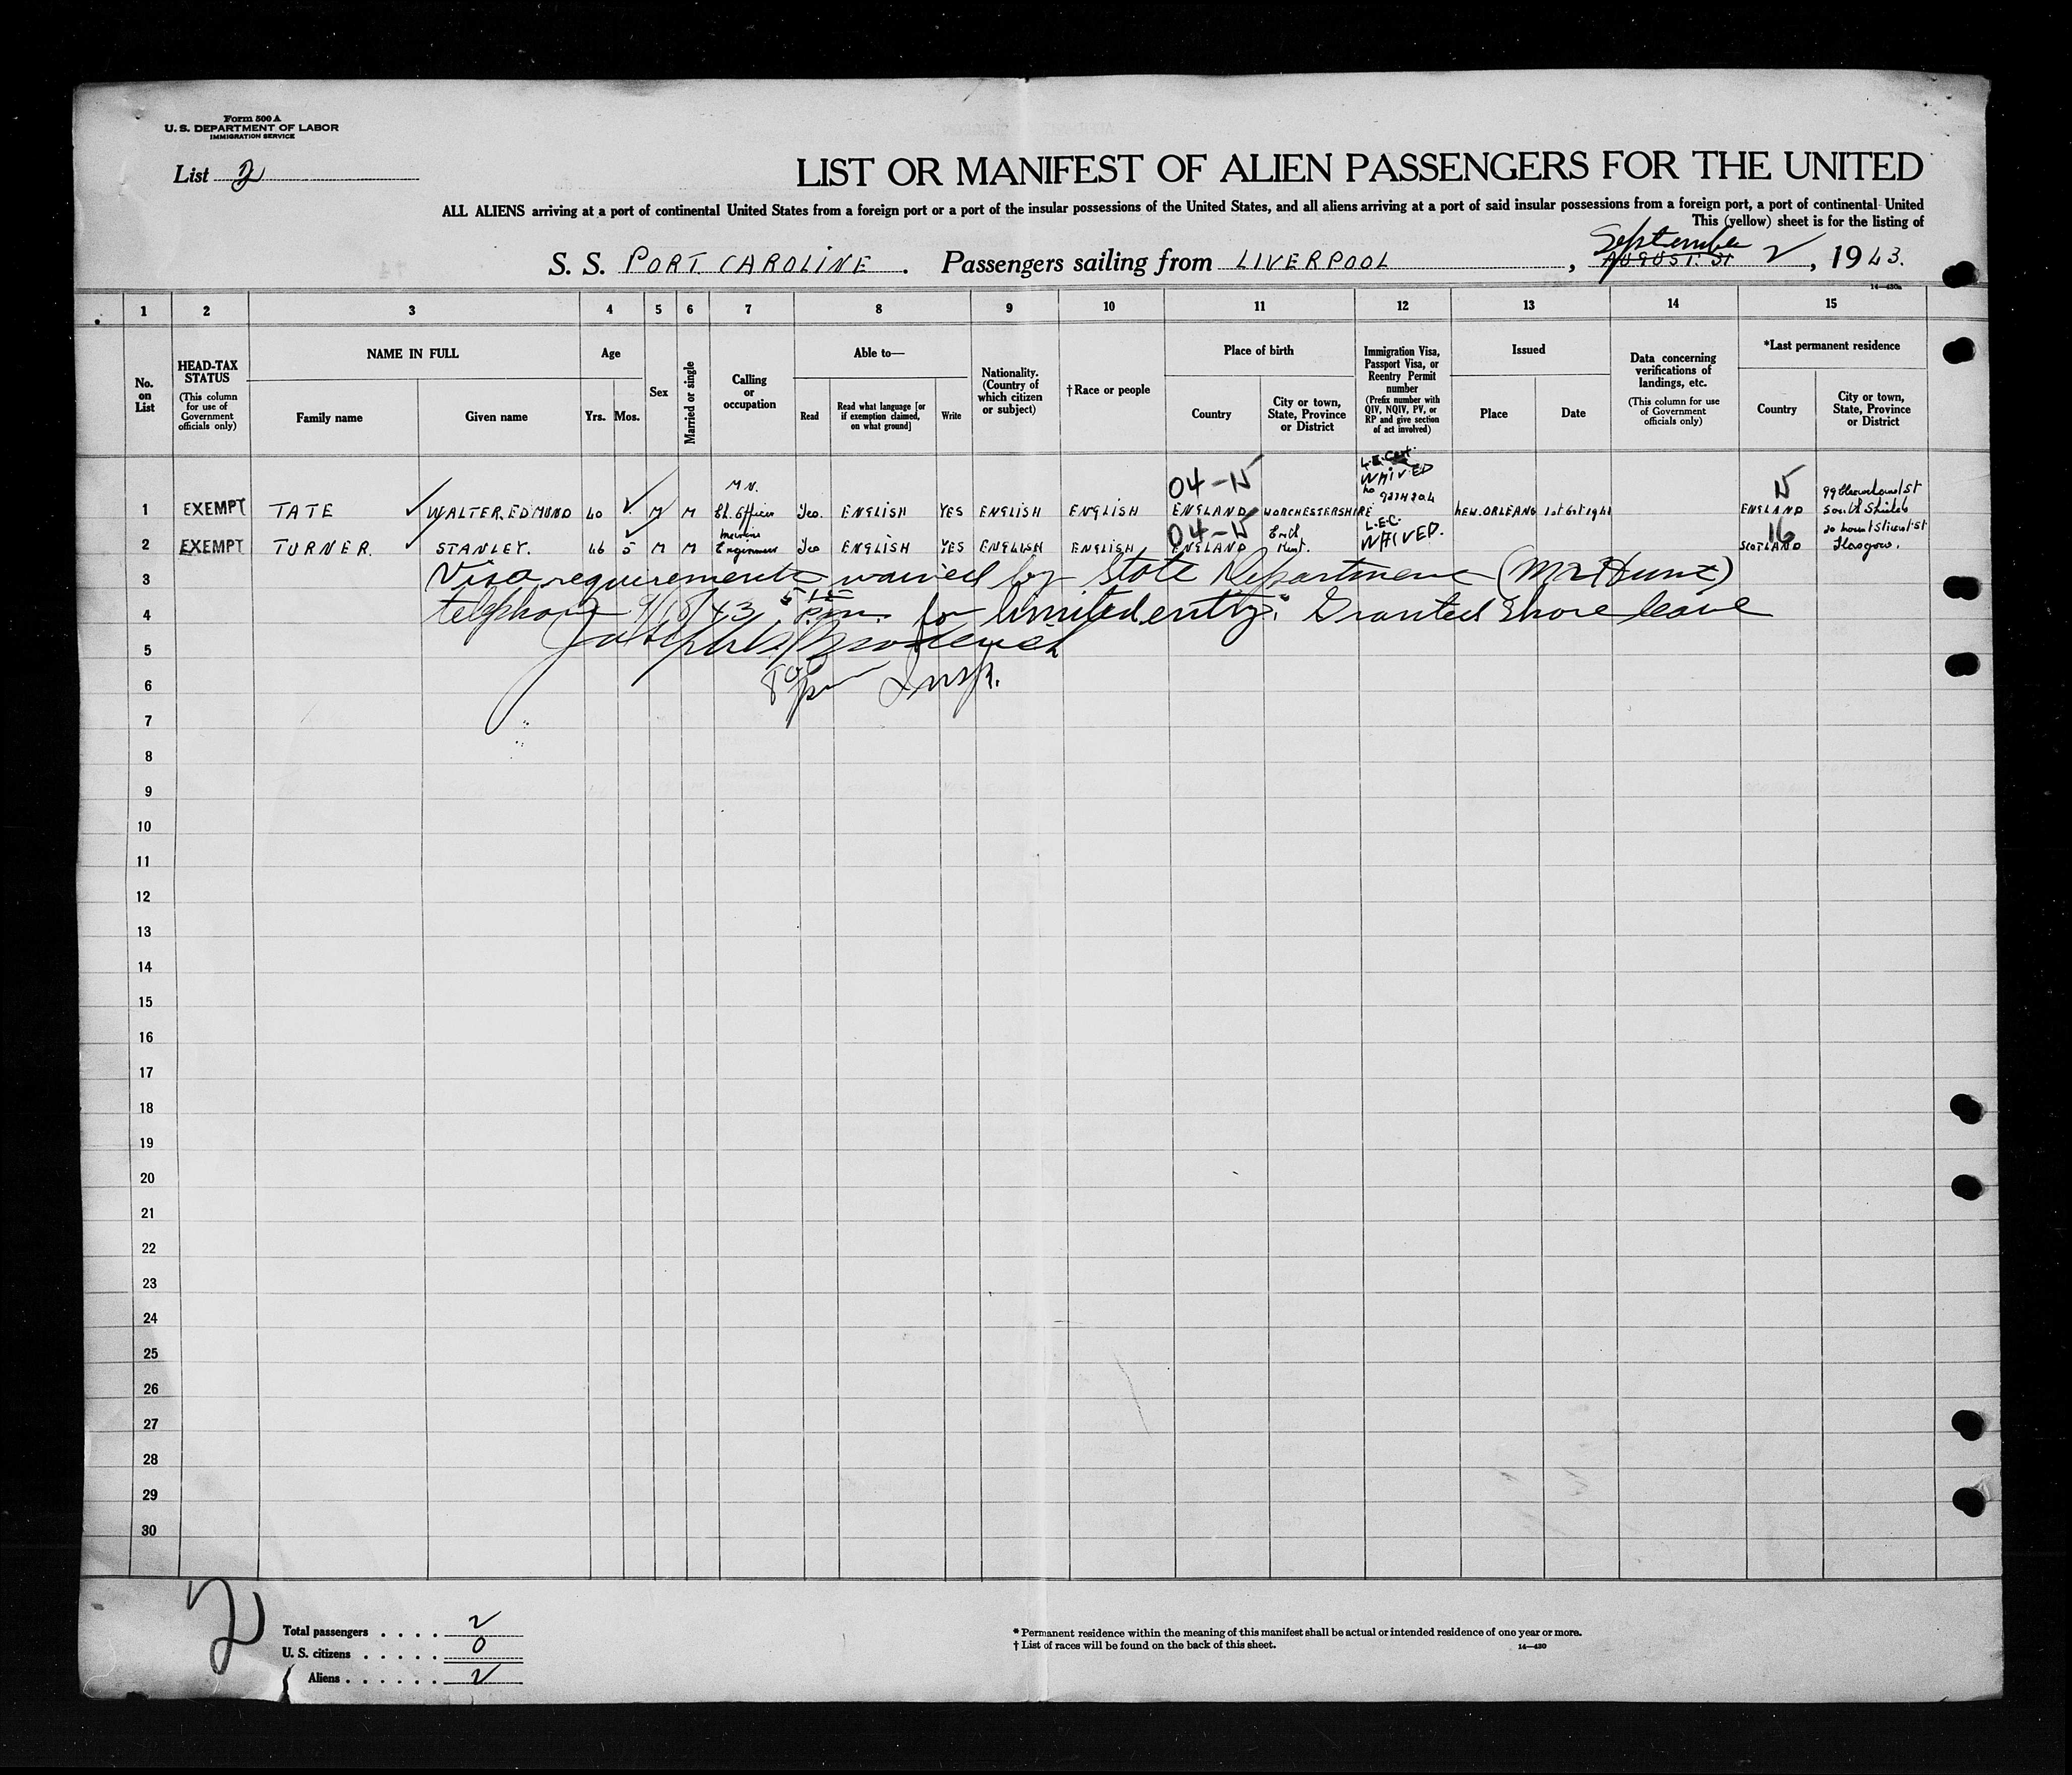 Form 500 A
U. S. DEPARTMENT OF LABOR
IMMIGRATION SERVICE
List 2
LIST OR MANIFEST OF ALIEN PASSENGERS FOR THE UNITED
ALL ALIENS arriving at a port of continental United States from a foreign port or a port of the insular possessions of the United States, and all aliens arriving at a port of said insular possessions from a foreign port, a port of continental United
This (yellow) sheet is for the listing of
September
S. S. PORT CAROLINE . Passengers sailing from LIVERPOOL , AUGUST 31 2 , 1943.
14—430a
1 2 3 4 5 6 7 8 9 10 11 12 13 14 15
No. on List
HEAD-TAX STATUS
(This column for use of Government officials only)
NAME IN FULL
Family name
Given name
Age
Yrs. Mos.
Sex
Married or single
Calling or occupation
Able to—
Read
Read what language [or if exemption claimed, on what ground]
Write
Nationality. (Country of which citizen or subject)
† Race or people
Place of birth
Country
City or town, State, Province or District
Immigration Visa, Passport Visa, or Reentry Permit number
(Prefix number with QIV, NQIV, PV, or RP and give section of act involved)
Issued
Place
Date
Data concerning verifications of landings, etc.
(This column for use of Government officials only)
*Last permanent residence
Country
City or town, State, Province or District
M.N. 04-15 WAIVED 15
1 EXEMPT TATE WALTER. EDMUND 40 M M Ch. Officer Yes. ENGLISH YES ENGLISH ENGLISH ENGLAND WORCHESTERSHIRE NEW. ORLEANS 1st Oct 1941 ENGLAND South Shields
04-15 L.E.C. 16
2 EXEMPT TURNER. STANLEY. 46 5 M M Engineer Yes ENGLISH YES ENGLISH ENGLISH ENGLAND Kent. WAIVED. SCOTLAND Glasgow.
3 Visa requirements waived by State Department (Mr Hunt)
4 telephone 9/18/43 5 15 p.m. for limited entry. Granted Shore leave
5 Joseph
6 8 00 pm Insp.
7
8
9
10
11
12
13
14
15
16
17
18
19
20
21
22
23
24
25
26
27
28
29
30
2
Total passengers . . . . 2
U. S. citizens . . . . . 0
Aliens . . . . . . 2
* Permanent residence within the meaning of this manifest shall be actual or intended residence of one year or more.
† List of races will be found on the back of this sheet.
14—430